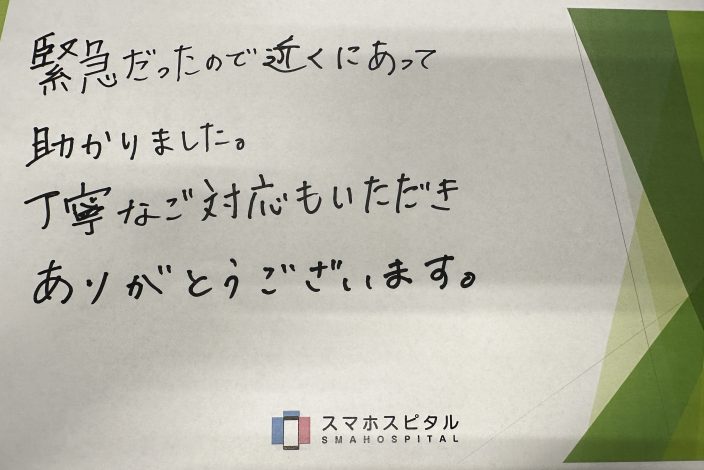 緊急だったので近くにあって
助かりました。
丁寧なご対応もいただき
ありがとうございます。
スマホスピタル
SMAHOSPITAL